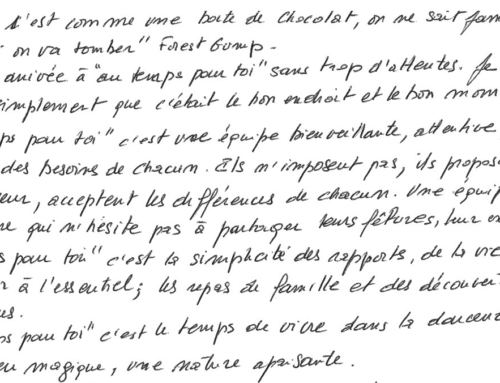 c'est comme une boite de chocolat, on ne sait jam
on va tomber" Forest Gump.
arrivée à "au temps pour toi" sans trop d'attentes. Je
simplement que c'était le bon endroit et le bon mom
ps pour toi" c'est une équipe bienveillante, attentive
des besoins de chacun. Ils n'imposent pas, ils propos
eur, acceptent les différences de chacun. Une équip
ne qui n'hésite pas à partager leurs fêlures, leur
s pour toi" c'est la simplicité des rapports, de la vie
r à l'essentiel; les repas de famille et des découvert
us.
ps pour toi" c'est le temps de vivre dans la douceur
eu magique, une nature apaisante.